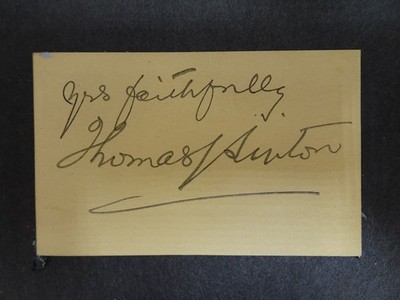 Yrs faithfully
Thomas Sinton